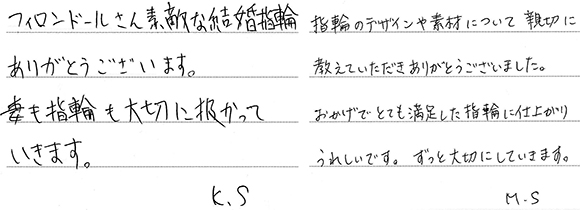 フィロンドールさん素敵な結婚指輪
ありがとうございます。
妻も指輪も大切に扱かって
いきます。
K.S
指輪のデザインや素材について 親切に
教えていただきありがとうございました。
おかげでとても満足した指輪に仕上がり
うれしいです。ずっと大切にしていきます。
M.S